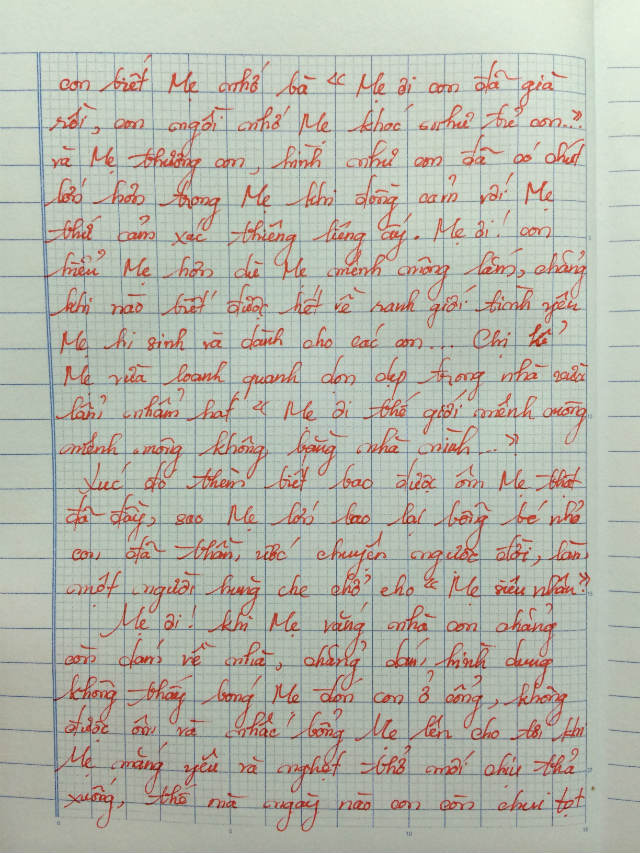 con biết Mẹ nhớ bà “ Mẹ ơi con đã già
rồi, con ngồi nhớ Mẹ khóc như trẻ con..”
và Mẹ thương con, hình như con đã có chút
lớn hơn trong Mẹ khi đồng cảm với Mẹ
thứ cảm xúc thiêng liêng ấy. Mẹ ơi! con
hiểu Mẹ hơn dù Mẹ mênh mông lắm, chẳng
khi nào biết được hết về ranh giới tình yêu
Mẹ hi sinh và dành cho các con... Chị kể
Mẹ vừa loanh quanh dọn dẹp trong nhà vừa
lẩm nhẩm hát “ Mẹ ơi thế giới mênh mông
mênh mông không bằng nhà mình...”
Xúc đó thèm biết bao được ôm Mẹ thật
đã đầy, sao Mẹ lớn lao lại bỗng bé nhỏ
con đã thần, ước chuyện ngược đời, làm
một người hùng che chở cho “ Mẹ siêu nhân”
Mẹ ơi! khi Mẹ vắng nhà con chẳng
còn dám về nhà, chẳng dám hình dung
không thấy bóng Mẹ đón con ở cổng, không
được ôm và nhấc bổng Mẹ lên cho tới khi
Mẹ mắng yêu và nghẹt thở mới chịu thả
xuống, thế mà ngày nào con còn chui tọt